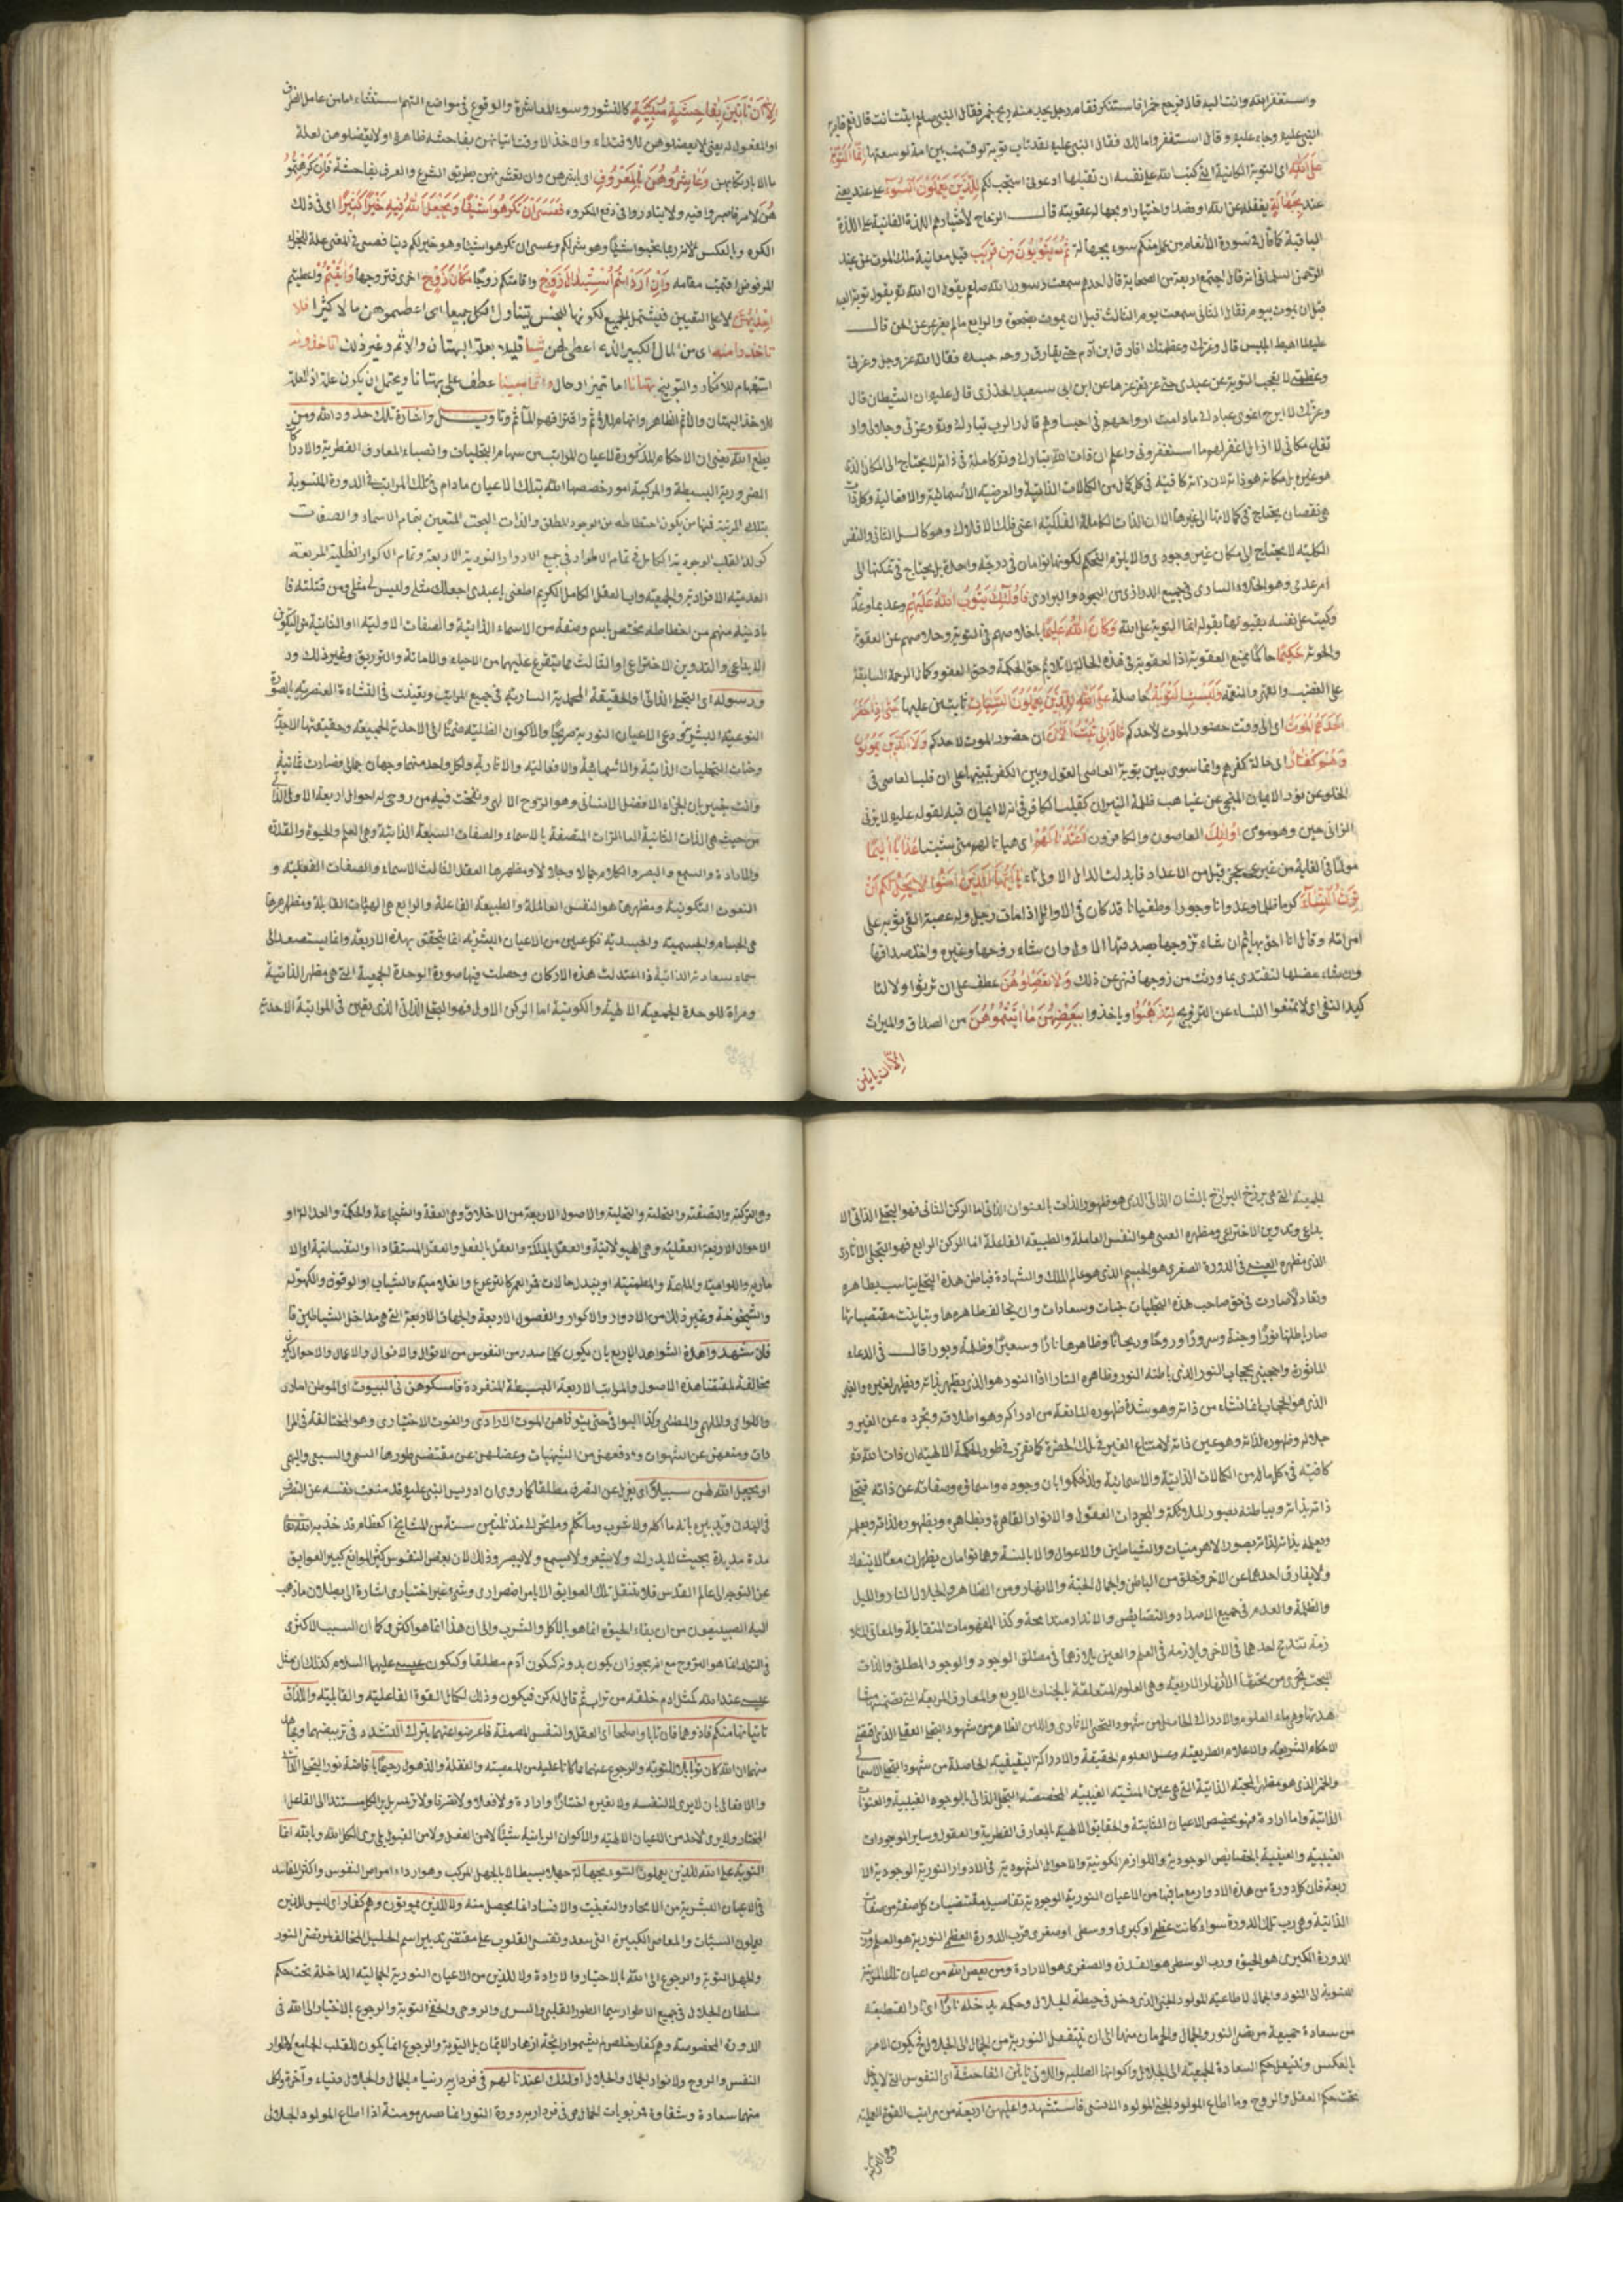 واستغفر الله واتاب اليه قال فرجع فاستنكر فقام رجل منه ريح خمر فقال النبي صلعم انت قال نعم
النبي عليه وجاء عليه وقال استغفروا لماعز فقال النبي عليه لقد تاب توبة لو قسمت بين امة لوسعتها انما التوبة
على الله اى التوبة الكائنة التى كتب الله على نفسه ان تقبلها ادعونى استجب لكم للذين يعملون السوء
بجهالة
الباقية كما قال فى سورة الأنعام من عمل منكم سوء بجهالة ثم يتوبون من قريب قبل معاينة ملك الموت عن عبد
الرحمن السلمانى انه قال اجتمع اربعة من الصحابة قال احدهم سمعت رسول الله صلعم يقول ان الله تع يقبل توبة العبد
قبل ان يموت بيوم فقال الثانى سمعت يوم الثالث قبل ان يموت بضحوة والرابع ما لم يغرغر عن الحسن قال
عليه لما اهبط ابليس قال وعزتك وعظمتك لا افارق ابن آدم حتى يفارق روحه جسده فقال الله عز وجل وعزتى
وعظمتى لا احجب التوبة عن عبدى حتى يغرغر بها عن ابن ابى سعيد الخدرى قال عليه ان الشيطان قال
وعزتك لا ابرح اغوى عبادك ما دامت ارواحهم فى اجسادهم قال الرب تبارك وتع وعزتى وجلالى و
ارتفاع مكانى لا ازال اغفر لهم ما استغفرونى واعلم ان ذات الله تبارك وتع كاملة فى ذاته لا يحتاج الى المكان الذى
هو غيره بل مكانه هو ذاته لان ذاته كافية فى كل كمال من الكمالات الذاتية والعرضية الأسمائية والافعالية وكل ذات
هى نقصان يحتاج فى كمالاتها الى غيرها الا ان الذات الكاملة الفلكية اعنى فلك الافلاك وهو كامل الثانى والنفس
الكلية لا يحتاج الى مكان غير وجودى والا يلزم التحكم لكونهما توأمان فى درجة واحدة بل يحتاج فى تمكنها الى
امر عدمى وهو الخلاء السارى فى جميع الذرارى من النجوم والبرارى فاولئك يتوب الله عليهم وعد بما وعد
وكتب على نفسه بقبولها بقوله انما التوبة على الله وكان الله عليما باخلاصهم فى التوبة وخلاصهم عن العقوبة
حكيما حاكما بمنع العقوبة اذ العقوبة فى هذه الحالة لا تلائم حق الحكمة وحق العفو وكمال الرحمة السابقة
على الغضب والنقمة وليست التوبة حاصلة على الله للذين يعملون السيئات ثابتين عليها حتى اذا حضر
احدهم الموت اى الى وقت حضور الموت لأحدكم قال انى تبت الآن ان حضور الموت لاحدكم ولا الذين يموتون
وهم كفار اى حالة كفرهم وانما سوى بين توبة العاصى وبين الكفر تنبيها على ان قلب العاصى فى
الخلو عن نور الايمان المنجى عن غياهب ظلمة النيران كقلب الكافر فى انه لا ايمان فيه لقوله عليه لا يزنى
الزانى حين وهو مومن اولئك العاصون والكافرون اعتدنا لهم اى هيانا لهم عذابا اليما
مولما فى الغاية من غير قبل من الاعداد فابدلت الدال الاولى تاء يا ايها الذين امنوا لا يحل لكم ان
ترثوا النساء كرها ظلما وعدوانا وجورا وطغيانا قد كان فى الاوائل اذا مات رجل وله عصبة القى ثوبه على
امراته وقال انا احق بها ثم ان شاء تزوجها بصدقتها الاولى وان شاء زوجها غيره واخذ صداقها
وان شاء عضلها لتفتدى بما ورثت من زوجها فنهى عن ذلك ولا تعضلوهن عطف على ان ترثوا ولا لتا
كيد النفى اى لا تمنعوا النساء عن التزويج لتذهبوا وياخذوا ببعض ما آتيتموهن من الصداق والميراث
الا ان ياتين
الا ان ياتين بفاحشة مبينة كالنشوز وسوء المعاشرة والوقوع فى مواضع التهم استثناء اما من عامل الظرف
او المفعول له يعنى لا تعضلوهن للافتداء والاخذ الا وقت اتيانهن بفاحشة ظاهرة او لا تعضلوهن لعلة
ما الا بارتكابهن وعاشروهن بالمعروف اى باشرهن وان تعشرتهن بطريق الشرع والعرف بفاحشة فان كرهتمو
هن لامر فاصبروا فيه ولا يتبادروا فى دفع المكروه فعسى ان تكرهوا شيئا ويجعل الله فيه خيرا كثيرا اى فى ذلك
الكره وبالعكس لانه ربما يحبوا شيئا وهو شر لكم وعسى ان تكرهوا شيئا وهو خير لكم دينا فعسى فى المعنى علة للجزاء
المرفوض اقيمت مقامه وان اردتم استبدال زوج واقامتكم زوجا مكان زوج اخرى فتزوجها وآتيتم واعطيتم
احديهن لا على التعيين فيشتمل الجميع لكونها للجنس يتناول الكل جميعا اى اعطيتموهن مالا كثيرا فلا
تاخذوا منه اى من المال الكبير الذى اعطى لهن شيئا قليلا بعلة البهتان والاثم وغير ذلك اتاخذونه
استفهام للانكار والتوبيخ بهتانا اما تميز او حال واثما مبينا عطف على بهتانا ويحتمل ان يكون علة
للاخذ البهتان والاثم الظاهر واتهام للاثم واقترافهم المآثم وتأويل واشارة تلك حدود الله ومن
يطع الله يعنى ان الاحكام المذكورة للاعيان المراتب من سهام التجليات وانصباء المعارف الفطرية والادرا
الضرورية البسيطة والمركبة امور خصصها الله بتلك الاعيان مادام فى تلك المراتب فى الدورة المنسوبة
بتلك المرتبة فيها من يكون احتطاطه من الوجود المطلق والذات البحت المتعين بتمام الاسماء والصفات
كولد القلب الوجودية الكامل فى تمام الاطوار فى جميع الادوار النورية الاربعة وتمام الاكوار الظلية المربعة
العدمية الافرادية والجمعية واب العقل الكامل الكريم اطعنى يا عبدى اجعلك مثلى وليس لى مثل ومن قتلته فا
باديته منهم من احتطاطه مختص باسم وصفة من الاسماء الذاتية والصفات الاولية والثانية من التكوين
الابداعى والتدوين الاختراعى والثالث مما يتفرع عليهما من الاحياء والاماتة والتوريق وغير ذلك ور
ورسوله اى التجلى الذاتى والحقيقة المحمدية السارية فى جميع المراتب وبقيت فى النشاءة العنصرية بالصورة
النوعية البشرية ودعى الاعيان النورية صريحا والاكوان الظلية ضمنا الى الاحدية الجمعية وحقيقتها الاحدية
وجنات التجليات الذاتية والاسمائية والافعالية والاثارية ولكل واحد منهما وجهان جمالى فصارت ثمانية
وانت بقين بان الجزاء الا فضل الانسانى وهو الروح الالهى ونفخت فيه من روحى له احوال اربعة الاولى الذا
من حيث هى الذات الثانية الذات المتصفة بالاسماء والصفات السبعة الذاتية وهى العلم والحيوة والقدرة
والارادة والسمع والبصر والكلام جمالا وجلالا ومظهرها العقل الثالث الاسماء والصفات الفعلية و
النعوت التكوينية ومظهرها هو النفس العاملة والطبيعة الفاعلة والرابع هى الهيئات القابلة ومظهرها
هى الجسام والجسمية والجسدية فكل عين من الاعيان البشرية انما يتحقق بهذه الاربعة وانما يستصعد الى
سماء سعادته الذاتية اذا اعتدلت هذه الاركان وحصلت فيها صورة الوحدة الجمعية التى هى مظهر الذاتية
ومراة للوحدة الجمعية الالهية والكونية اما الركن الاول فهو التجلى الذاتى الذى يتعين فى المرتبة الاحدية
الجمعية التى هى برزخ البرازخ بالشان الذاتى الذى هو ظهور الذات بالعنوان الذاتى اما الركن الثانى فهو التجلى الذاتى الا
بداع وتدوين الاختراعى ومظهره هو النفس العاملة والطبيعة الفاعلة اما الركن الرابع فهو التجلى الآثارى
الذى مظهره العينى فى الدورة الصغرى هو الجسم الذى هو عالم الملك والشهادة فباطن هذه التجليات يناسب بظاهره
وتعادلا صارت فى حق صاحب هذه التجليات جنات وسعادات وان يخالف ظاهرها وتباينت مقتضياتها
صار باطلها نورا وجنة وسرورا وروحا وريحانا وظاهرها نارا وسعيرا وظلمة وبورا قال فى الدعاء
الماثورة واحجبنى بحجاب النور الذى باطنه النور وظاهره النار اذ النور هو الذى يظهر بذاته ويظهر لغيره والغير
الذى هو الحجاب انما نشاء من ذاته وهو شدة ظهوره المانعة من ادراكه وهو اطلاقه وتجرده عن الغير و
جلاله وظهوره لذاته وهو عين ذاته لامتناع الغير فى تلك الحضرة كما تقرر فى طور الحكمة الالهية ان ذات الله تع
كافية فى كل ماله من الكمالات الذاتية والاسمائية ولذا حكموا بان وجوده واسماؤه وصفاته عن ذاته فيتجلى
ذاته بذاته وبباطنه بصور الملائكة والمجردات العقول والانوار القاهرة وبظاهره وبظهوره لذاته
ولا يفارق احدهما عن الآخر وتخلق من الباطن والجمال الجنة والانهار ومن الظاهر والجلال النار والليل
والظلمة والعدم فى جميع الاضداد والنقايض والانداد مندامجة وكذا المفهومات المتقابلة والمعانى المتلا
زمة تندرج احدهما فى الاخرى ويلازمه فى العلم والعين بلازمها فى مطلق الوجود والوجود المطلق والذات
البحت يجرى من تحتها الأنهار الاربعة وهى العلوم المتعلقة بالجنات الاربع والمعارف المربعة التى يتضمنتها
الاحكام الشريعية والاعلام الطريقية وعسل العلوم الحقيقية والادراكات اليقينية الحاصلة من شهود التجلى الاسما
والخمر الذى هو مظهر المحبة الذاتية التى هى عين المشية الغيبية المخصصة التجلى الذاتى بالوجوه الغيبية والعنوان
الذاتية واما ارادة فهو بتخصيص الاعيان الثابتة والحقايق الالهية بالمعارف الفطرية والعقول وساير الموجودات
الغيبية والعينية بالخصايص الوجودية واللوازم الكونية والاحوال الشهودية فى الادوار النورية الوجودية الا
ربعة فان كل دورة من هذه الادوار مع ما فيها من الاعيان النورية الوجودية تفاصيل مقتضيات كل صفة من صفات
الذاتية وهى رب تلك الدورة سواء كانت عظمى او كبرى او وسطى او صغرى فرب الدورة العظمى النورية هو العلم ورب
الدورة الكبرى هو الحيوة ورب الوسطى هو القدرة والصغرى هو الارادة ومن يعص الله من اعيان تلك المرتبة
المنسوبة الى النور والجمال لاطاعته المولود الجنى الذى دخل فى حيطة الجلال وحكمه يدخله نارا اى نار القطيعة
من سعادة جميعة من ضمن النور والجمال والحرمان منها الى ان ينتقل النورية من الجمال الى الجلال فيكون الامر
بالعكس وينتقل حكم السعادة الجمعية الى الجلال واكوانها الظلية واللاتى ياتين الفاحشة اى النفوس التى لا يدخل
تحت حكم العقل والروح وما اطاع المولود الجنى المولود الانسى فاستشهدوا عليهن اربعة من مراتب القوة العملية
وهى التزكية
وهى التزكية والتصفية والتخلية والتحلية والاصول الاربعة من الاخلاق وهى العفة والشجاعة والحكمة والعدالة او
الاحوال الاربعة العقلية وهى الهيولانية والعقل بالملكة والعقل بالفعل والعقل المستفاد والنفسانية اى الا
مارية واللوامية والملهمة والمطمئنة او بتبدل حالات قرى العمر كالترعرع والغلامية والشباب او الوقوف والكهولة
والشيخوخة وغير ذلك من الادوار والاكوار والفصول الاربعة والجهات الاربعة التى هى مداخل الشياطين فا
فان شهدوا هذه الشواهد الاربع بان يكون كلما صدر من النفوس من الاقوال والافعال والاعمال والاحوال يكون
مخالفة لمقتضا هذه الاصول والمراتب الاربعة البسيطة المنفردة فامسكوهن فى البيوت اى الموطن امارى
واللوامى والملهمى والمطمئنى وكذا البواقى حتى يتوفاهن الموت الارادى والفوت الاختيارى وهو المخالفة فى المرا
دات ومنعهن عن الشهوات ودفعهن من الشهيات وعضلهن عن مقتضى طورها السمى والسبعى والبهى
او يجعل الله لهن سبيلا اى يعزل عن التصرف مطلقا كما روى ان ادريس النبى عليه قد منعت نفسه عن التصرف
فى البدن وتدبيره بانه ما اكل ولا شرب وما تكلم وما يتحرك منذ ثلثين سنة من المشايخ العظام قد خذ بر الله
مدة مديدة بحيث لا يدرك ولا يشعر ولا يسمع ولا يبصر وذلك لان بعض النفوس كثير الموانع كبير العوايق
عن التوجه الى عالم القدس فلا ينتقل تلك العوايق الا بامر اضطرارى وشىء غير اختيارى اشارة الى بطلان ما ذهب
اليه الطبيعيون من ان بقاء الحيوة انما هو بالاكل والشرب والحال ان هذا انما هو اكثرى وكما ان السبب الاكثرى
فى التولد انما هو التزوج مع انه يجوز ان يكون بدونه ككون آدم مطلقا وككون عيسى عليهما السلام كذلك ان مثل
عيسى عند الله كمثل ادم خلقه من تراب ثم قال له كن فيكون وذلك لكمال القوة الفاعلية والقابلية واللذان
ياتيانها منكم فاذوهما فان تابا واصلحا اى العقل والنفس المصفاة فاعرضوا عنهما بترك التشدد فى تربيتهما وتجا
منهما ان الله كان توابا للتوبة والرجوع عنهما ما كانا عليه من المعصية والغفلة والذهول رحيما بافاضة نور التجلى الذا
والافعالى بان لا يرى لا لنفسه ولا لغيره اختيارا وارادة ولا فعلا ولا تصرفا ولا ترى بل يرى الكل مستندا الى الفاعل ا
المختار ولا يرى لاحد من الاعيان الالهية والاكوان الربانية شيئا لا من الفعل ولا من القبول بل يرى الكل لله وبالله انما
التوبة على الله للذين يعملون السوء بجهالة جهلا بسيطا لا بالجهل المركب وهو ارداء امراض النفوس واكثر المفاسد
فى الاعيان البشرية من الالحاد والتعنيت والافساد انما يحصل منه ولا للذين يموتون وهم كفار اى ليس للذين
يعملون السيئات والمعاصى الكبيرة التى بعد وتقسى القلوب على مقتضى تدبير اسم الجليل المخالف لمرتضى النور
والجهل التوبة والرجوع الى الله بالاختيار والارادة ولا للذين من الاعيان النورية الجمالية الداخلة تحت حكم
سلطان الجلال فى جميع الاطوار سيما الطور القلبى والسرى والروحى والخفى التوبة والرجوع بالاختيار الى الله فى
الدورة المخصوصة وهم كفار خلص لم يشموا رائحة ازهار الايمان بل التوبة والرجوع انما يكون للقلب الجامع لاطوار
النفس والروح ولا نوار الجمال والجلال اولئك اعتدنا لهم فى فردارية ضياء الجمال والجلال وضياء وآخرة ولكل
منهما سعادة وشقاوة مربوبات الجمال هى فى فردارية دورة النور انما يصير مومنة اذا اطاع المولود الجلالى